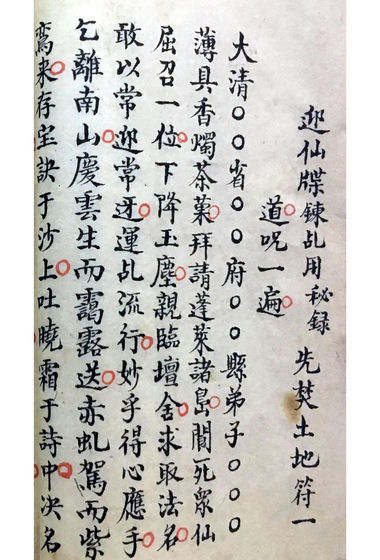 迎仙牒鍊乩用秘録 先焚土地符一
道呪一遍
大清〇〇省〇〇府〇〇縣弟子〇〇〇
薄具香燭茶菓拜請蓬萊諸島閬苑衆仙
屈召一位下降玉塵親臨壇舍求取法名
敢以常迎常迓運乩流行妙乎得心應手
乞離南山慶雲生而靄露送赤虬駕而紫
鸞来存宝訣于沙上吐曉霜于詩中决名